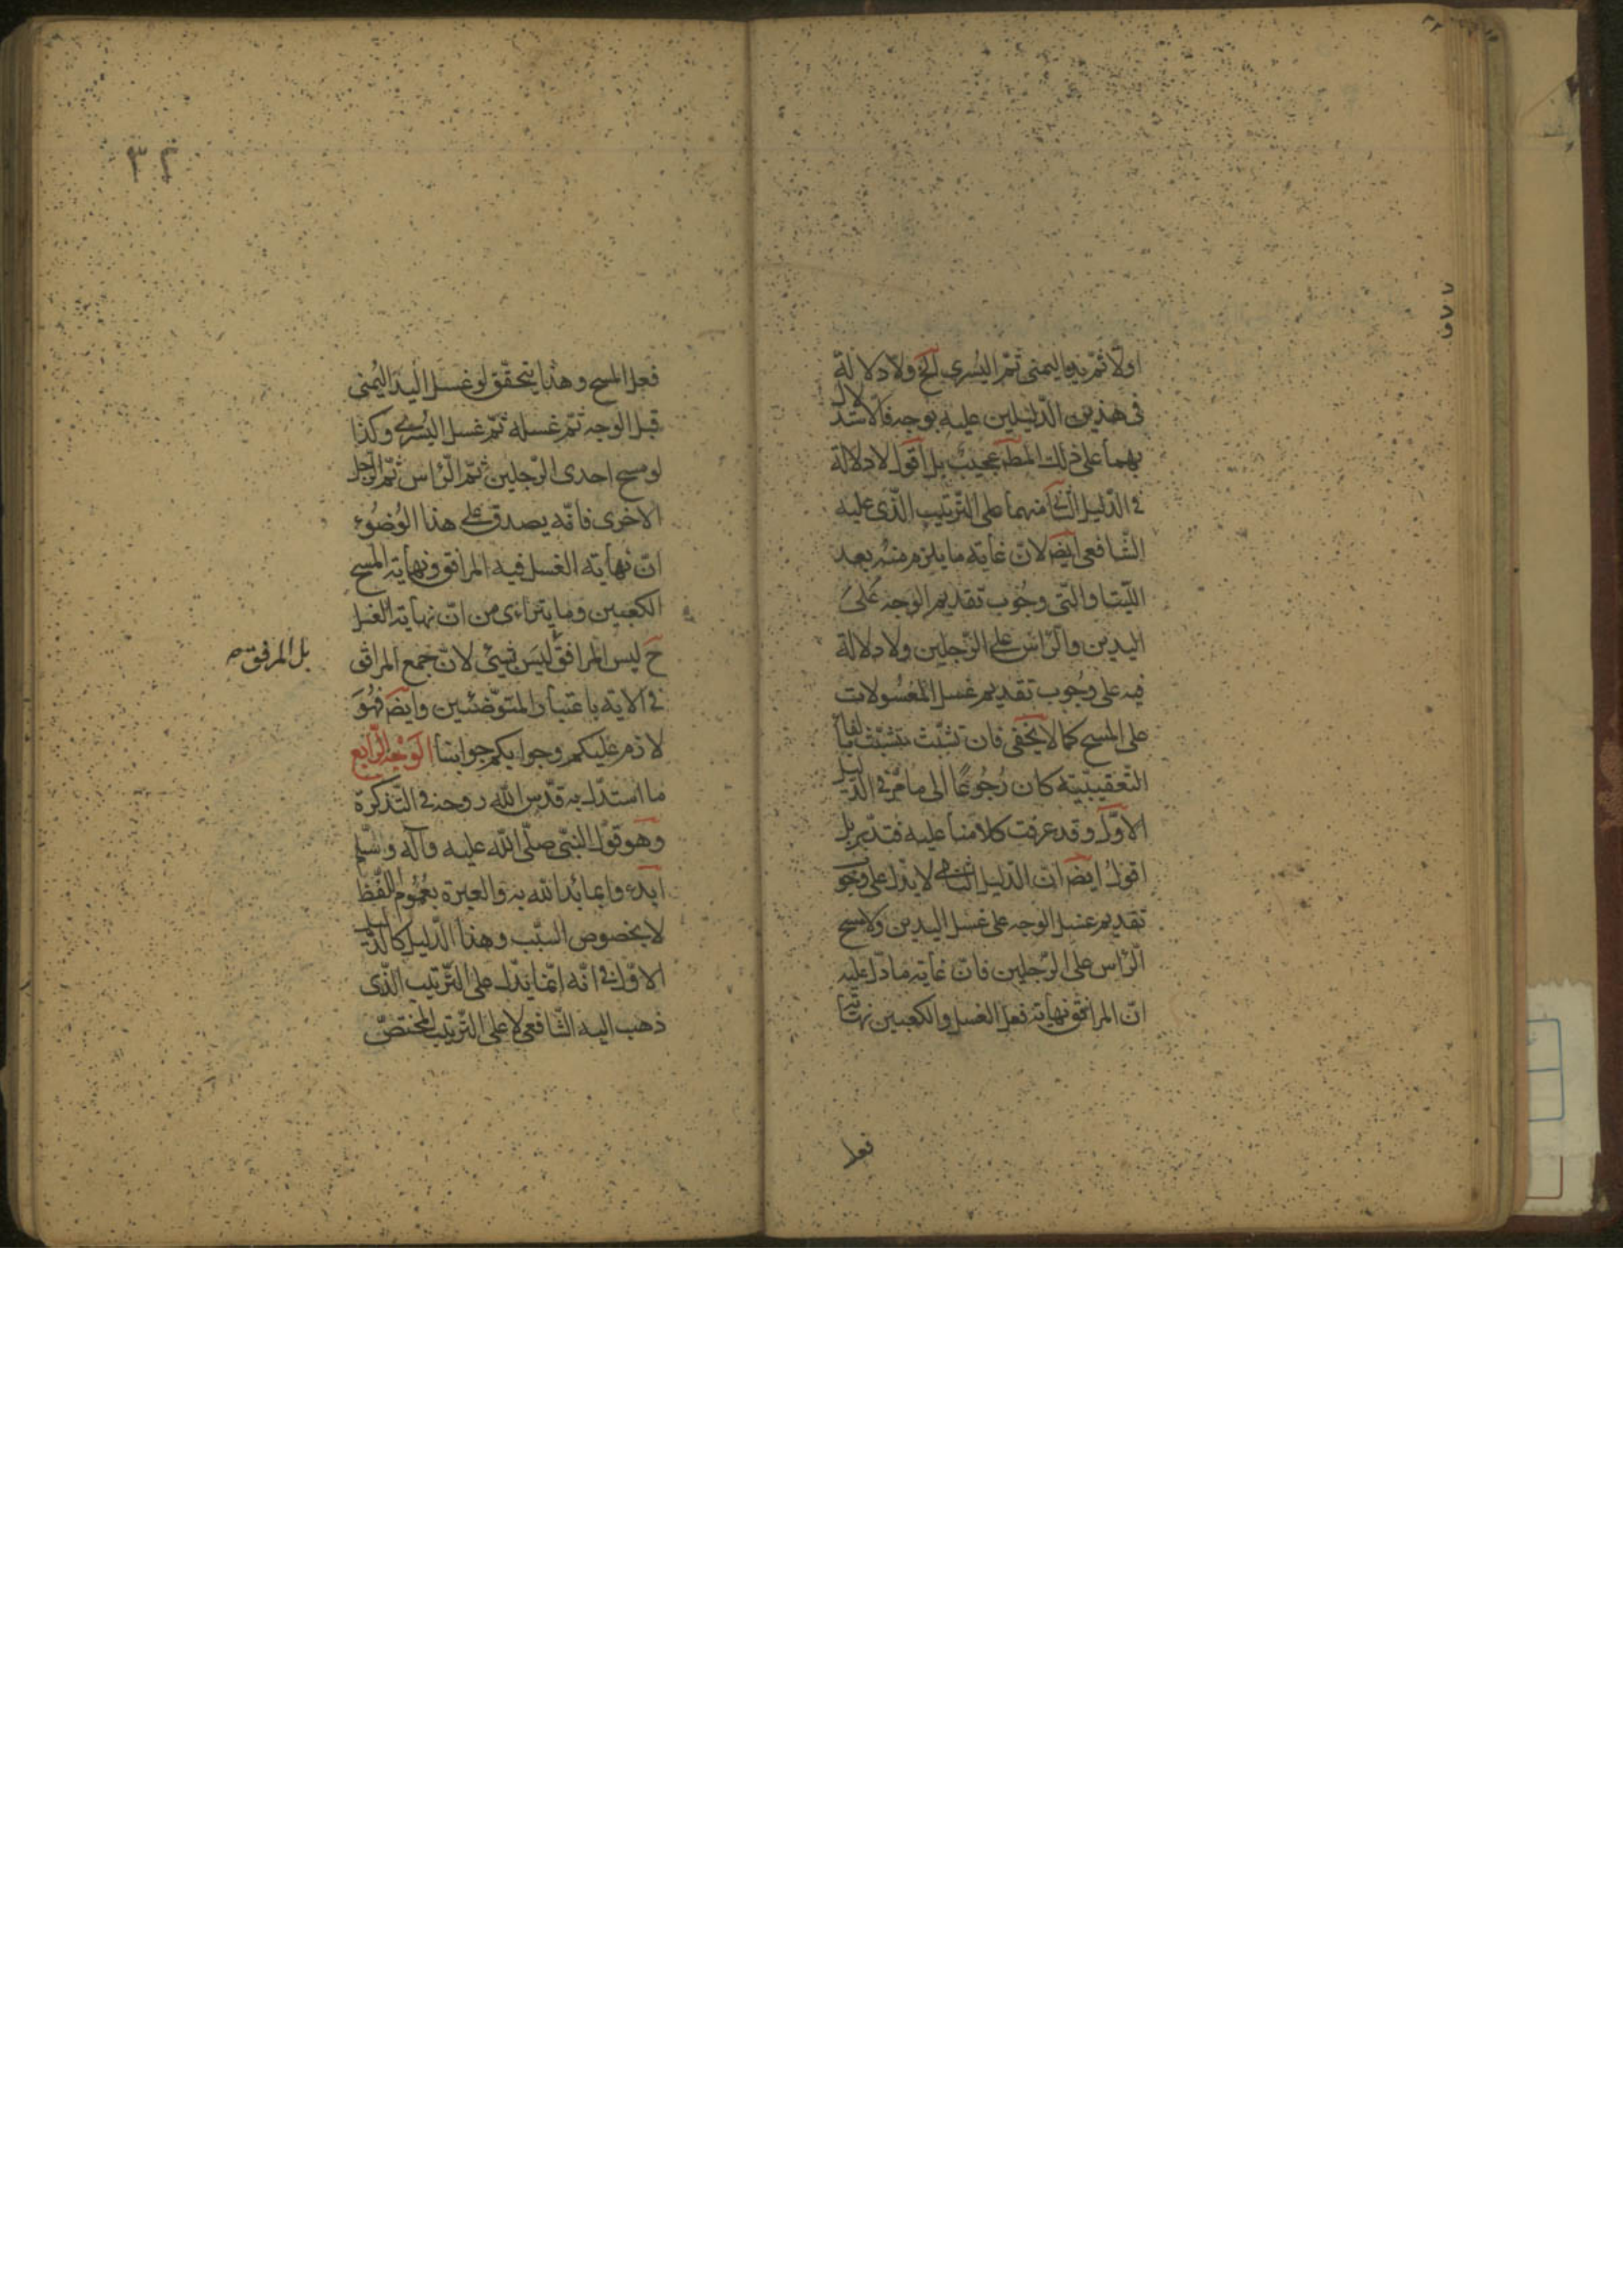 اولا ثم يده اليمنى ثم اليسرى الخ ولا دلالة
فى هذين الدليلين عليه بوجه فالاستدلال
بهما على ذلك المط عجيب بل اقول لا دلالة
فى الدليل الثانى منهما على الترتيب الذى عليه
الشافعى ايض لان غاية ما يلزم منه بعد
اللتيا والتى وجوب تقديم الوجه على
اليدين والراس على الرجلين ولا دلالة
فيه على وجوب تقديم غسل المغسولات
على المسح كما لا يخفى فان تشبث متشبث بالفاء
التعقيبية كان رجوعا الى ما مر فى الدليل
الاول وقد عرفت كلامنا عليه فتدبر بل
اقول ايض ان الدليل الثانى لا يدل على وجوب
تقديم غسل الوجه على غسل اليدين ولا مسح
الراس على الرجلين فان غاية ما دل عليه
ان المرافق نهاية فعل الغسل والكعبين نهاية
فعل
٣٢
فعل المسح وهذا يتحقق لو غسل اليد اليمنى
قبل الوجه ثم غسله ثم غسل اليسرى وكذا
لو مسح احدى الرجلين ثم الراس ثم الرجل
الاخرى فانه يصدق على هذا الوضوء
ان نهاية الغسل فيه المرافق ونهاية المسح
الكعبين وما يتراءى من ان نهاية الغسل
ح ليس المرافق ليس بشئ لان جمع المرافق
بل المرفق
فى الاية باعتبار المتوضئين وايض فهو
لازم عليكم وجوابكم جوابنا الوجه الرابع
ما استدل به قدس الله روحه فى التذكرة
وهو قول النبى صلى الله عليه وآله وسلم
ابدءوا بما بدا لله به والعبرة بعموم اللفظ
لا بخصوص السبب وهذا الدليل كالدليل
الاول فى انه انما يدل على الترتيب الذى
ذهب اليه الشافعى لا على الترتيب المختص